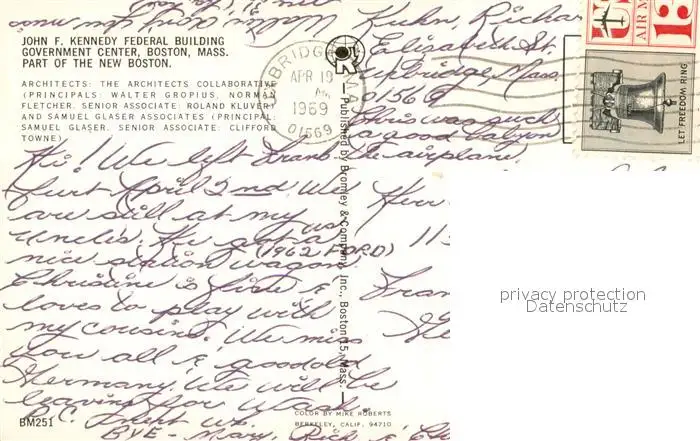 JOHN F. KENNEDY FEDERAL BUILDING
GOVERNMENT CENTER, BOSTON, MASS.
PART OF THE NEW BOSTON.
ARCHITECTS: THE ARCHITECTS COLLABORATIVE
(PRINCIPALS: WALTER GROPIUS, NORMAN
FLETCHER. SENIOR ASSOCIATE: ROLAND KLUVER)
AND SAMUEL GLASER ASSOCIATES (PRINCIPAL:
SAMUEL GLASER. SENIOR ASSOCIATE: CLIFFORD
TOWNE)
Hi! We left Frank-
furt April 2nd. We
are still at my
uncle's. He got us a
nice station wagon. (1962 FORD)
Christine is fine &
loves to play with
my cousins. We miss
you all & good old
Germany. We will be
leaving for Wash
D.C.
BYE - Mary, Rich &
BM251
Published by Bromley & Company, Inc., Boston 15, Mass.
COLOR BY MIKE ROBERTS
BERKELEY, CALIF. 94710
Kuhn, Richar
Elizabeth St.
Uxbridge, Mass.
01569
This was such
a good
the airplane
Herr
113
Fran
APR 19
1969
01569
AIR M
13
LET FREEDOM RING
privacy protection
Datenschutz